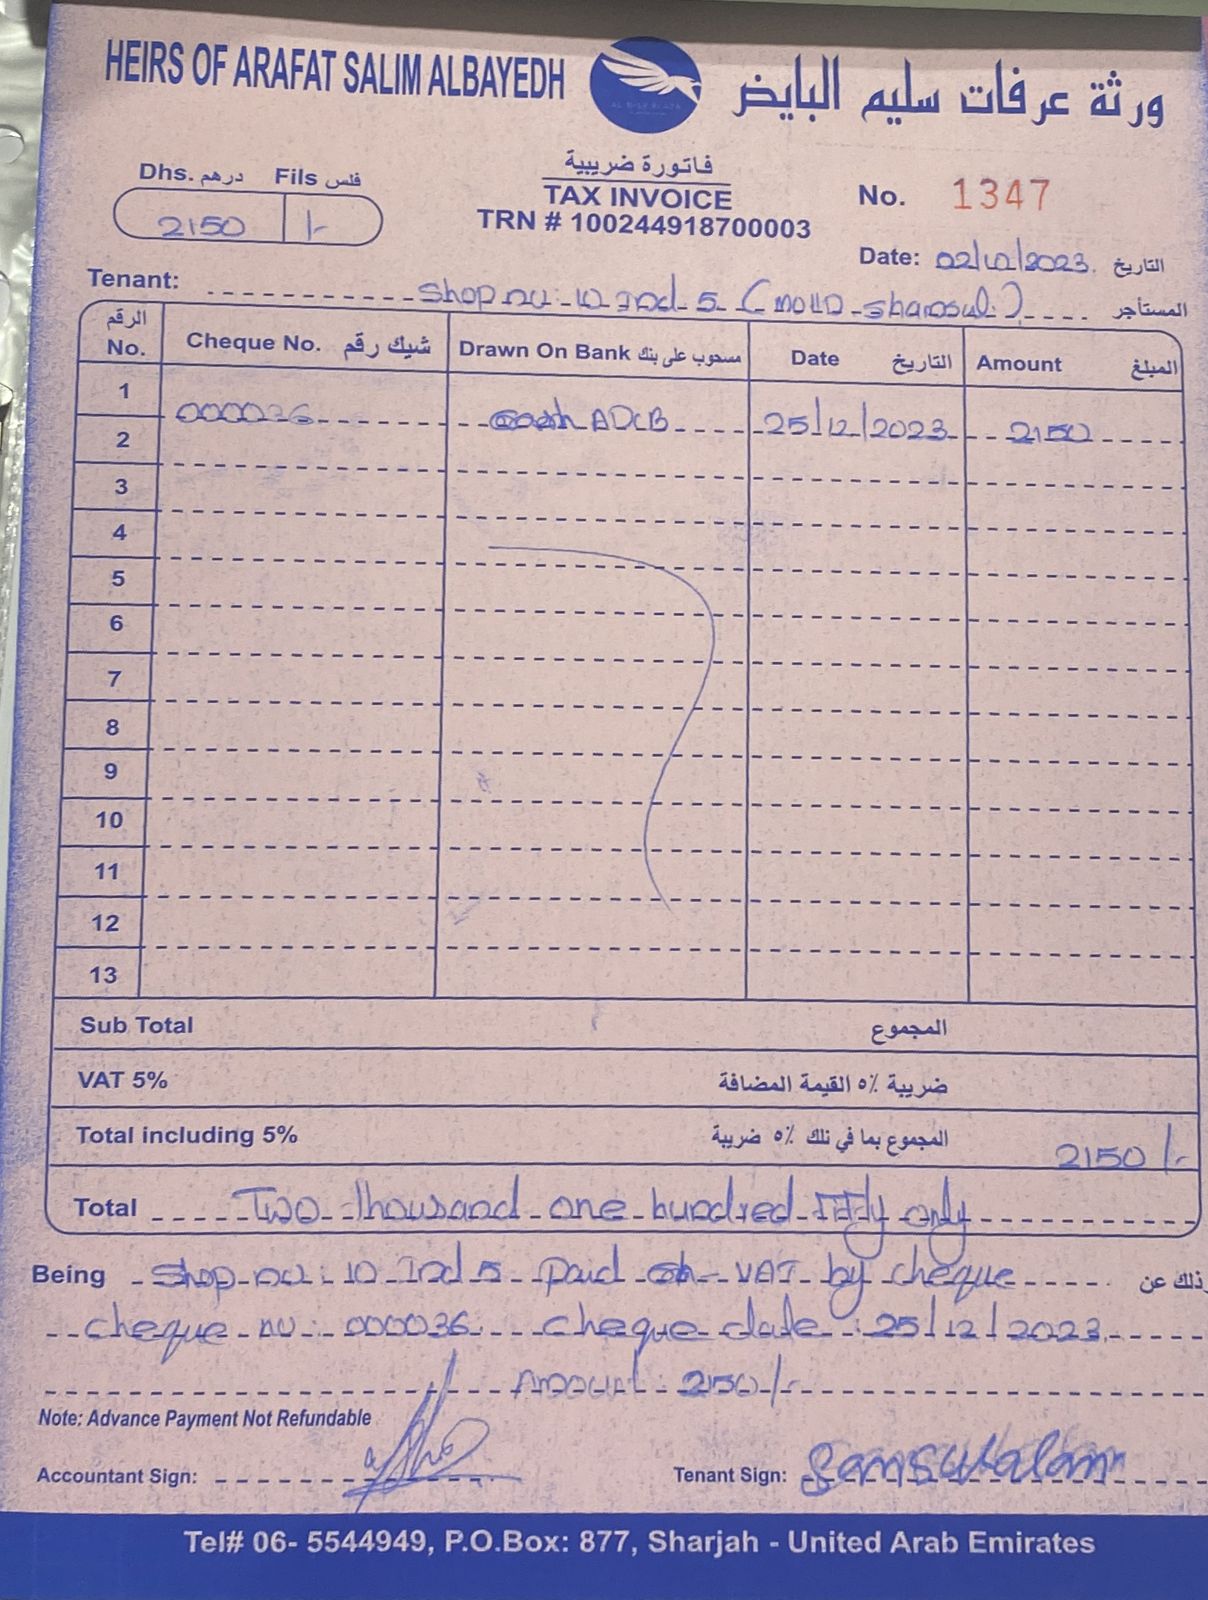 HEIRS OF ARAFAT SALIM ALBAYEDH
ورثة عرفات سليم البايض
فاتورة ضريبية
TAX INVOICE
TRN # 100244918700003
Dhs. درهم Fils فلس
2150 /-
No. 1347
Date: 02/10/2023 التاريخ
Tenant: Shop no: 10 Ind 5 ( المستأجر
الرقم No. Cheque No. شيك رقم Drawn On Bank مسحوب على بنك Date التاريخ Amount المبلغ
1
000036 ADCB 25/12/2023 2150
2
3
4
5
6
7
8
9
10
11
12
13
Sub Total المجموع
VAT 5% ضريبة ٥٪ القيمة المضافة
Total including 5% المجموع بما في ذلك ٥٪ ضريبة 2150/-
Total Two thousand one hundred Fifty only
Being Shop no: 10 Ind 5 paid VAT by cheque وذلك عن
cheque no: 000036 cheque date: 25/12/2023
Amount: 2150/-
Note: Advance Payment Not Refundable
Accountant Sign:
Tenant Sign:
Tel# 06- 5544949, P.O.Box: 877, Sharjah - United Arab Emirates